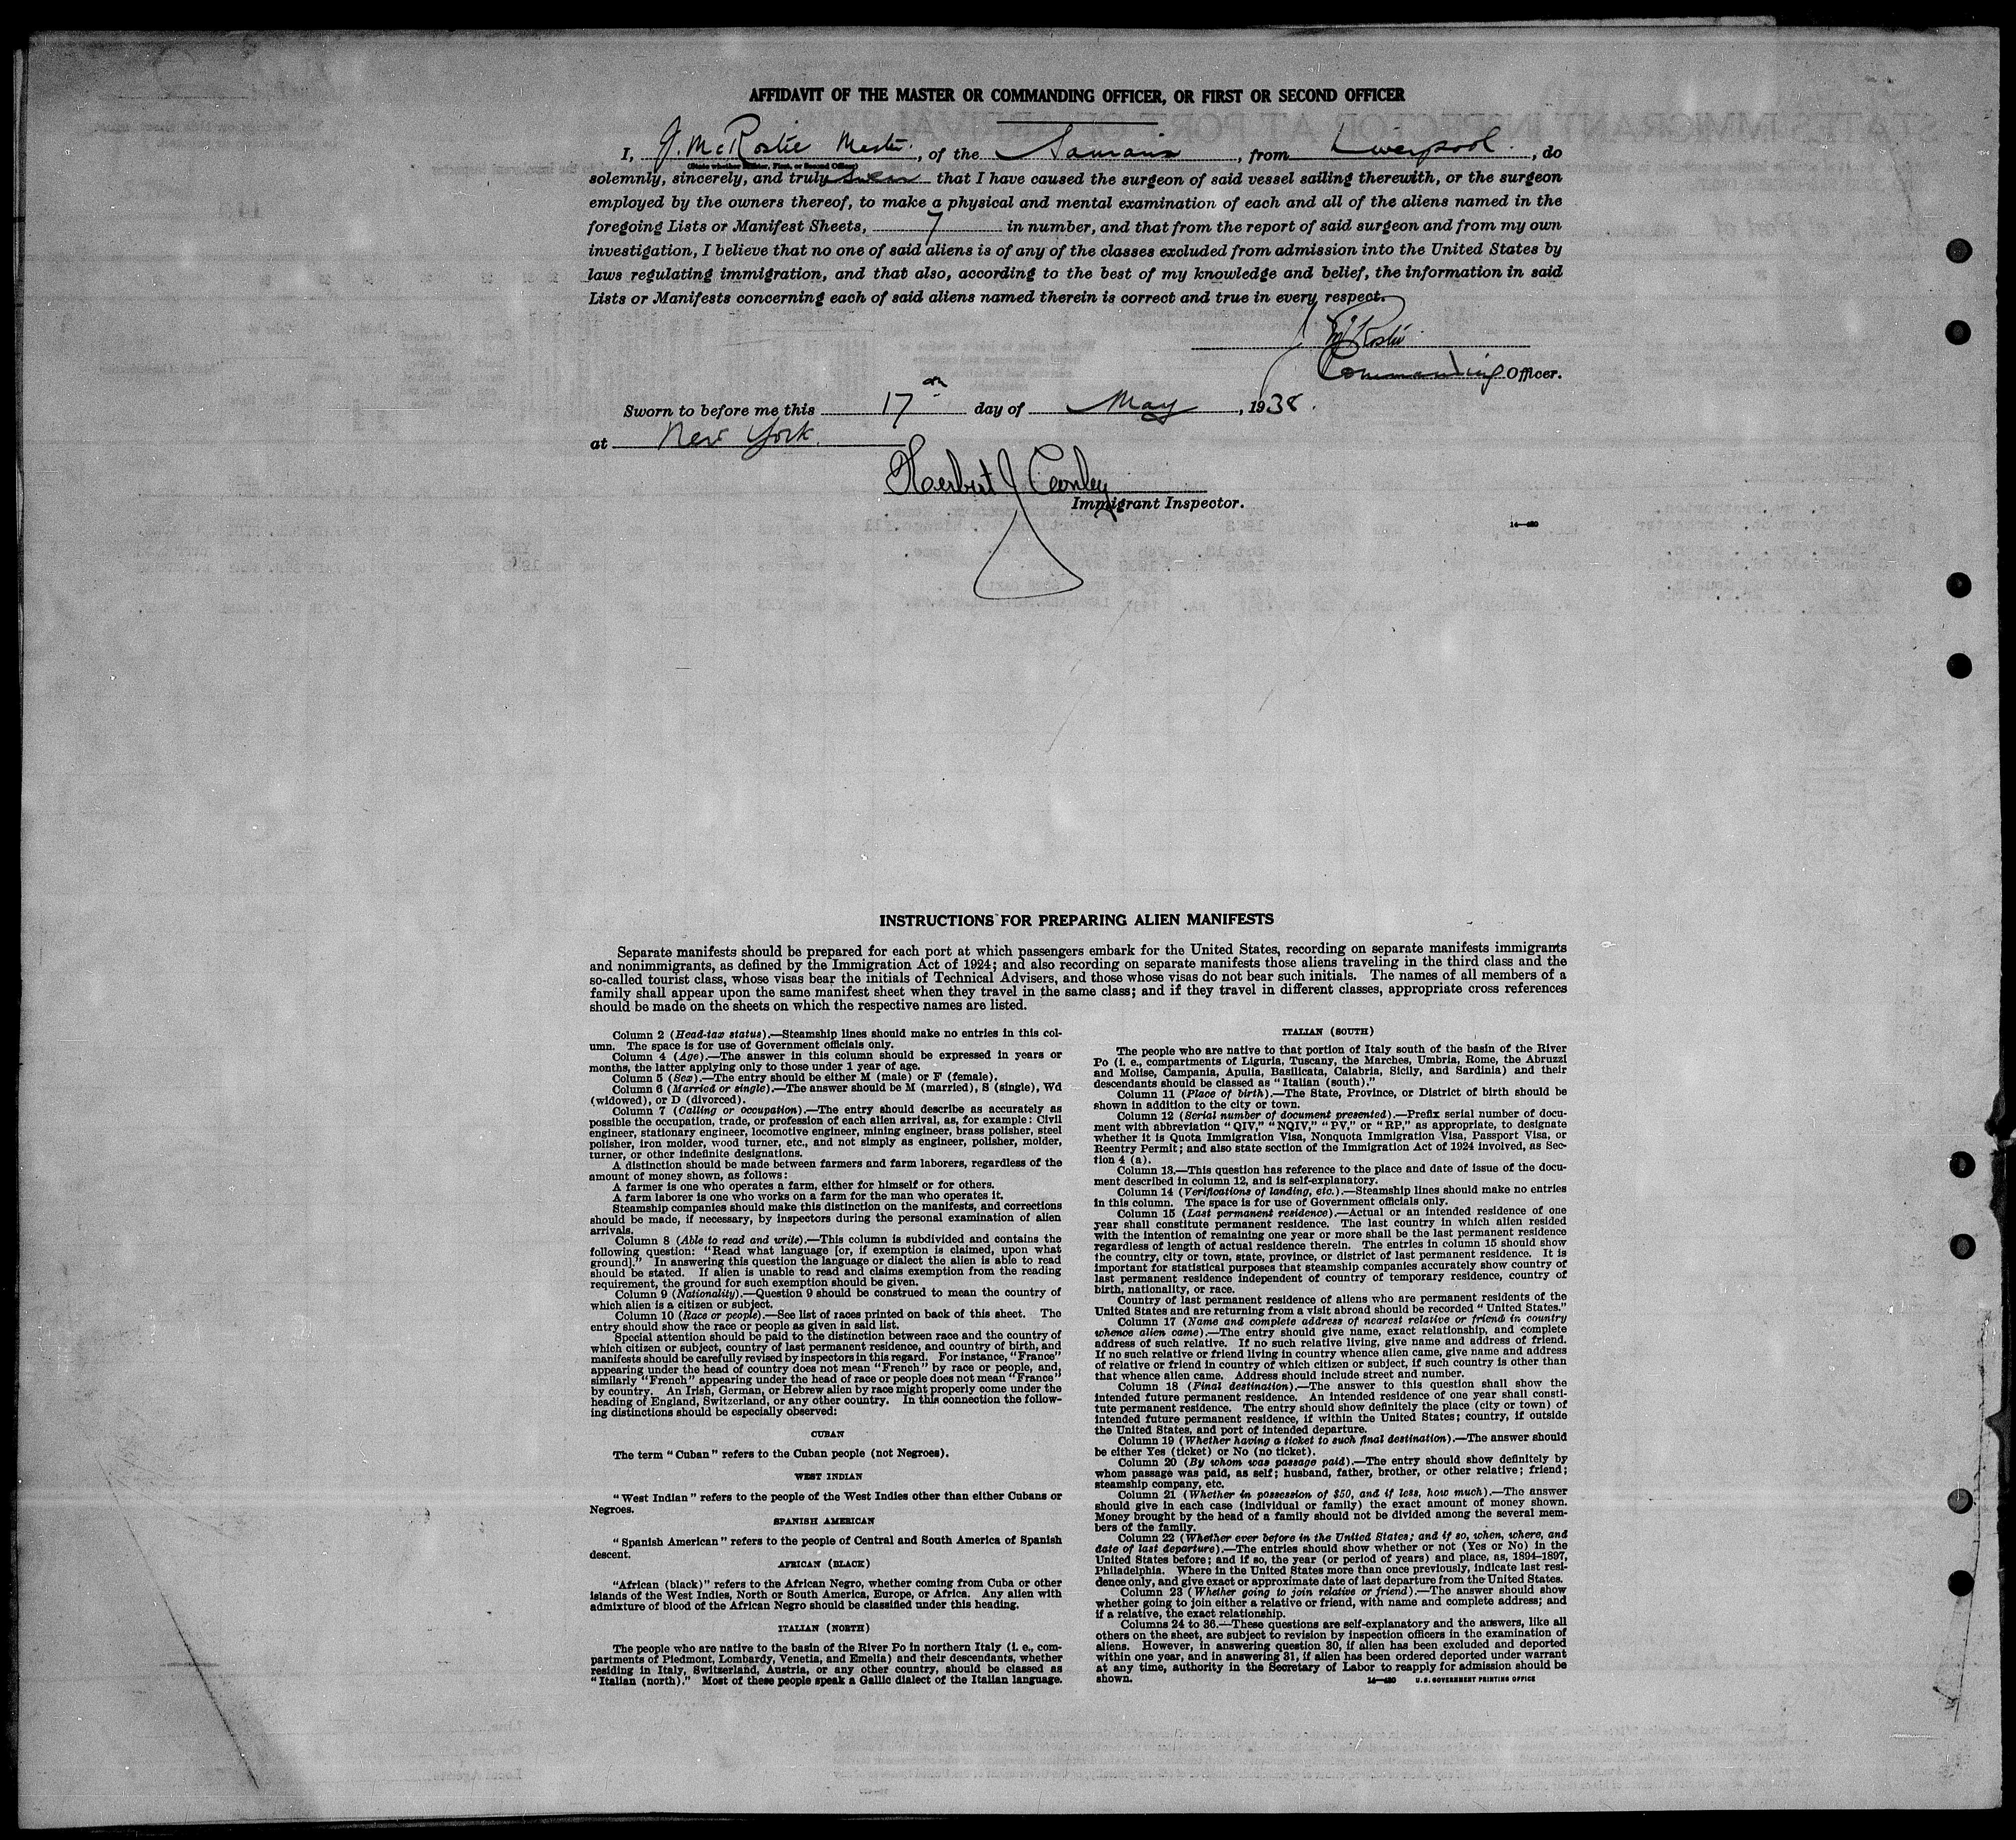 AFFIDAVIT OF THE MASTER OR COMMANDING OFFICER, OR FIRST OR SECOND OFFICER
I, J. McRostie Master, of the Samaria, from Liverpool, do
(State whether Master, First, or Second Officer)
solemnly, sincerely, and truly swear that I have caused the surgeon of said vessel sailing therewith, or the surgeon
employed by the owners thereof, to make a physical and mental examination of each and all of the aliens named in the
foregoing Lists or Manifest Sheets, 7 in number, and that from the report of said surgeon and from my own
investigation, I believe that no one of said aliens is of any of the classes excluded from admission into the United States by
laws regulating immigration, and that also, according to the best of my knowledge and belief, the information in said
Lists or Manifests concerning each of said aliens named therein is correct and true in every respect.
J McRostie
Commanding Officer.
Sworn to before me this 17th day of May, 1938.
at New York.
Herbert J Conley
Immigrant Inspector.
14—430
INSTRUCTIONS FOR PREPARING ALIEN MANIFESTS
Separate manifests should be prepared for each port at which passengers embark for the United States, recording on separate manifests immigrants
and nonimmigrants, as defined by the Immigration Act of 1924; and also recording on separate manifests those aliens traveling in the third class and the
so-called tourist class, whose visas bear the initials of Technical Advisers, and those whose visas do not bear such initials. The names of all members of a
family shall appear upon the same manifest sheet when they travel in the same class; and if they travel in different classes, appropriate cross references
should be made on the sheets on which the respective names are listed.
Column 2 (Head-tax status).—Steamship lines should make no entries in this col-
umn. The space is for use of Government officials only.
Column 4 (Age).—The answer in this column should be expressed in years or
months, the latter applying only to those under 1 year of age.
Column 5 (Sex).—The entry should be either M (male) or F (female).
Column 6 (Married or single).—The answer should be M (married), S (single), Wd
(widowed), or D (divorced).
Column 7 (Calling or occupation).—The entry should describe as accurately as
possible the occupation, trade, or profession of each alien arrival, as, for example: Civil
engineer, stationary engineer, locomotive engineer, mining engineer, brass polisher, steel
polisher, iron molder, wood turner, etc., and not simply as engineer, polisher, molder,
turner, or other indefinite designations.
A distinction should be made between farmers and farm laborers, regardless of the
amount of money shown, as follows:
A farmer is one who operates a farm, either for himself or for others.
A farm laborer is one who works on a farm for the man who operates it.
Steamship companies should make this distinction on the manifests, and corrections
should be made, if necessary, by inspectors during the personal examination of alien
arrivals.
Column 8 (Able to read and write).—This column is subdivided and contains the
following question: "Read what language [or, if exemption is claimed, upon what
ground]." In answering this question the language or dialect the alien is able to read
should be stated. If alien is unable to read and claims exemption from the reading
requirement, the ground for such exemption should be given.
Column 9 (Nationality).—Question 9 should be construed to mean the country of
which alien is a citizen or subject.
Column 10 (Race or people).—See list of races printed on back of this sheet. The
entry should show the race or people as given in said list.
Special attention should be paid to the distinction between race and the country of
which citizen or subject, country of last permanent residence, and country of birth, and
manifests should be carefully revised by inspectors in this regard. For instance, "France"
appearing under the head of country does not mean "French" by race or people, and,
similarly "French" appearing under the head of race or people does not mean "France"
by country. An Irish, German, or Hebrew alien by race might properly come under the
heading of England, Switzerland, or any other country. In this connection the follow-
ing distinctions should be especially observed:
CUBAN
The term "Cuban" refers to the Cuban people (not Negroes).
WEST INDIAN
"West Indian" refers to the people of the West Indies other than either Cubans or
Negroes.
SPANISH AMERICAN
"Spanish American" refers to the people of Central and South America of Spanish
descent.
AFRICAN (BLACK)
"African (black)" refers to the African Negro, whether coming from Cuba or other
islands of the West Indies, North or South America, Europe, or Africa. Any alien with
admixture of blood of the African Negro should be classified under this heading.
ITALIAN (NORTH)
The people who are native to the basin of the River Po in northern Italy (i. e., com-
partments of Piedmont, Lombardy, Venetia, and Emelia) and their descendants, whether
residing in Italy, Switzerland, Austria, or any other country, should be classed as
"Italian (north)." Most of these people speak a Gallic dialect of the Italian language.
ITALIAN (SOUTH)
The people who are native to that portion of Italy south of the basin of the River
Po (i. e., compartments of Liguria, Tuscany, the Marches, Umbria, Rome, the Abruzzi
and Molise, Campania, Apulia, Basilicata, Calabria, Sicily, and Sardinia) and their
descendants should be classed as "Italian (south)."
Column 11 (Place of birth).—The State, Province, or District of birth should be
shown in addition to the city or town.
Column 12 (Serial number of document presented).—Prefix serial number of docu-
ment with abbreviation "QIV," "NQIV," "PV," or "RP," as appropriate, to designate
whether it is Quota Immigration Visa, Nonquota Immigration Visa, Passport Visa, or
Reentry Permit; and also state section of the Immigration Act of 1924 involved, as Sec-
tion 4 (a).
Column 13.—This question has reference to the place and date of issue of the docu-
ment described in column 12, and is self-explanatory.
Column 14 (Verifications of landing, etc.).—Steamship lines should make no entries
in this column. The space is for use of Government officials only.
Column 15 (Last permanent residence).—Actual or an intended residence of one
year shall constitute permanent residence. The last country in which alien resided
with the intention of remaining one year or more shall be the last permanent residence
regardless of length of actual residence therein. The entries in column 15 should show
the country, city or town, state, province, or district of last permanent residence. It is
important for statistical purposes that steamship companies accurately show country of
last permanent residence independent of country of temporary residence, country of
birth, nationality, or race.
Country of last permanent residence of aliens who are permanent residents of the
United States and are returning from a visit abroad should be recorded "United States."
Column 17 (Name and complete address of nearest relative or friend in country
whence alien came).—The entry should give name, exact relationship, and complete
address of such relative. If no such relative living, give name and address of friend.
If no such relative or friend living in country whence alien came, give name and address
of relative or friend in country of which citizen or subject, if such country is other than
that whence alien came. Address should include street and number.
Column 18 (Final destination).—The answer to this question shall show the
intended future permanent residence. An intended residence of one year shall consti-
tute permanent residence. The entry should show definitely the place (city or town) of
intended future permanent residence, if within the United States; country, if outside
the United States, and port of intended departure.
Column 19 (Whether having a ticket to such final destination).—The answer should
be either Yes (ticket) or No (no ticket).
Column 20 (By whom was passage paid).—The entry should show definitely by
whom passage was paid, as self; husband, father, brother, or other relative; friend;
steamship company, etc.
Column 21 (Whether in possession of $50, and if less, how much).—The answer
should give in each case (individual or family) the exact amount of money shown.
Money brought by the head of a family should not be divided among the several mem-
bers of the family.
Column 22 (Whether ever before in the United States; and if so, when, where, and
date of last departure).—The entries should show whether or not (Yes or No) in the
United States before; and if so, the year (or period of years) and place, as, 1894–1897,
Philadelphia. Where in the United States more than once previously, indicate last resi-
dence only, and give exact or approximate date of last departure from the United States.
Column 23 (Whether going to join relative or friend).—The answer should show
whether going to join either a relative or friend, with name and complete address; and
if a relative, the exact relationship.
Columns 24 to 36.—These questions are self-explanatory and the answers, like all
others on the sheet, are subject to revision by inspection officers in the examination of
aliens. However, in answering question 30, if alien has been excluded and deported
within one year, and in answering 31, if alien has been ordered deported under warrant
at any time, authority in the Secretary of Labor to reapply for admission should be
shown.
14—430 U.S. GOVERNMENT PRINTING OFFICE